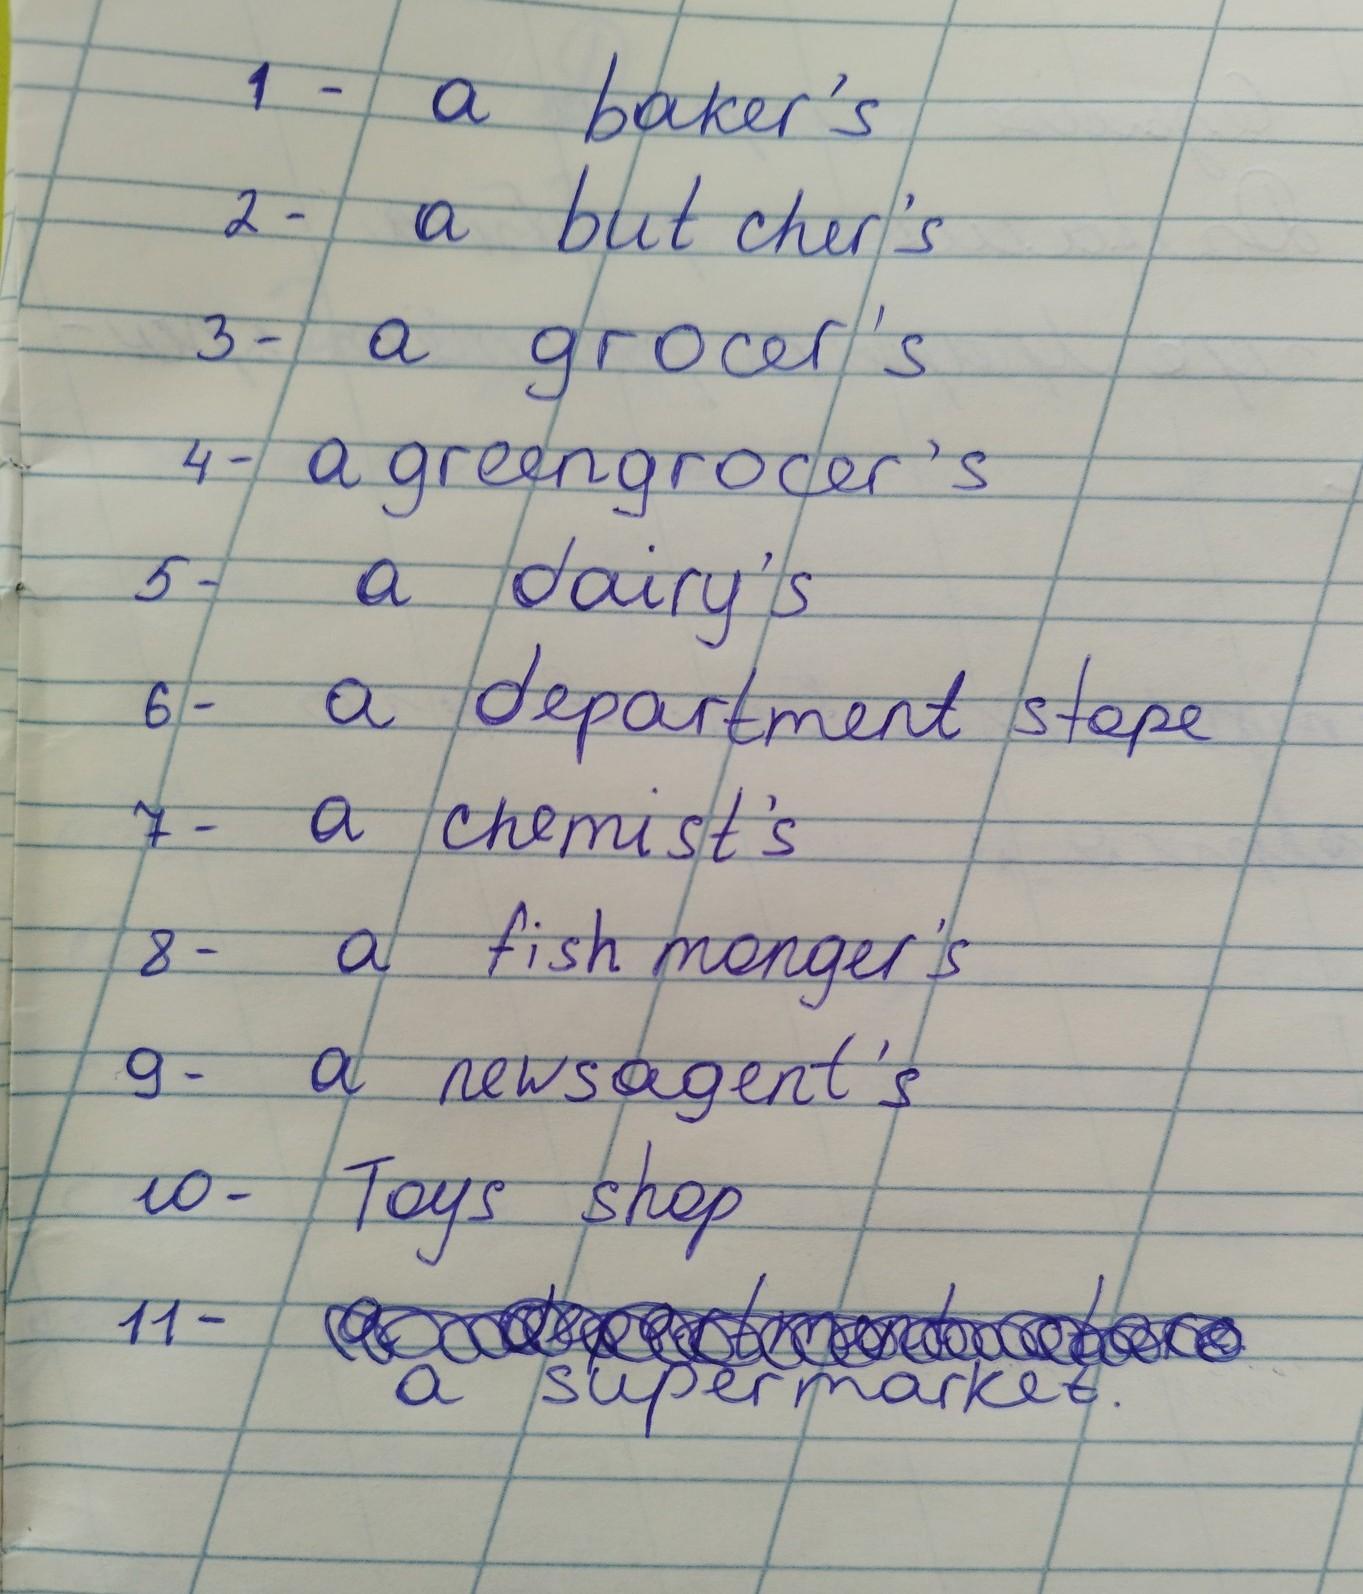 1 - a baker's
2 - a butcher's
3 - a grocer's
4 - a greengrocer's
5 - a dairy's
6 - a department stope
7 - a chemist's
8 - a fishmonger's
9 - a newsagent's
10 - Toys shop
11 - a department store
a supermarket.